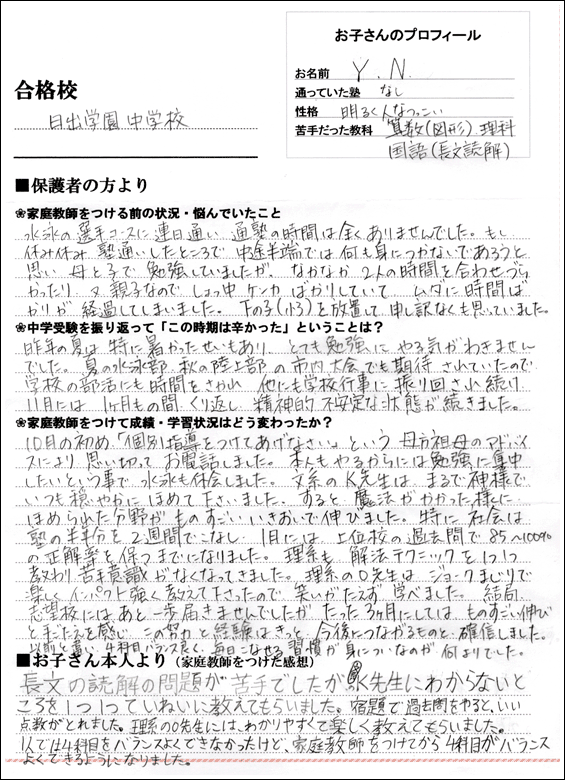 お子さんのプロフィール
お名前 Y.N.
通っていた塾 なし
性格 明るく人なつっこい
苦手だった教科 算数(図形) 理科
国語(長文読解)
合格校
日出学園中学校
■保護者の方より
❀家庭教師をつける前の状況・悩んでいたこと
水泳の選手コースに連日通い、通塾の時間は全くありませんでした。もし
休み休み 塾通いしたところで 中途半端では何も身につかないであろうと
思い 母と子で 勉強していましたが、なかなか 2人の時間を合わせづら
かったり、又 親子なので しょっ中 ケンカ ばかりしていて ムダに時間ば
かりが 経過してしまいました。下の子(小3)を放置して 申し訳なくも思っていました。
❀中学受験を振り返って「この時期は辛かった」ということは？
昨年の夏は 特に暑かったせいもあり、とても勉強に やる気がわきません
でした。夏の水泳部、秋の陸上部 の市内大会でも期待 されていたので
学校の部活にも時間をさかれ 他にも学校行事に 振り回され続け
11月には 1ヶ月もの間 くり返し 精神的 不安定な状態が続きました。
❀家庭教師をつけて成績・学習状況はどう変わったか？
10月の初め、「個別指導をつけてあげなさい」という 母方祖母のアドバイ
スにより 思い切って お電話しました。本人もやるからには勉強に集中
したいという事で 水泳も休会しました。文系のK先生は まるで神様で
いつも穏やかに ほめて下さいました。すると 魔法がかかった様に
ほめられた分野が ものすごい いきおいで伸びました。特に 社会は
塾の半年分を 2週間でこなし、1月には 上位校の過去問で 85〜100%
の正解率を保つまでになりました。理系も 解法テクニックを1つ1つ
教わり 苦手意識 がなくなってきました。理系のO先生は ジョークまじりで
楽しく インパクト強く教えて下さったので 笑いがたえず 学べました。結局
志望校には あと一歩届きませんでしたが たった3ヶ月にしては ものすごい伸び
と手ごたえを感じ この努力と経験はきっと 今後につながるものと 確信しました。
以前と違い、4科目バランス良く、毎日こなせる習慣が 身についたのが 何よりでした。
■お子さん本人より（家庭教師をつけた感想）
長文の読解の問題が 苦手でしたが K先生にわからないと
ころを1つ1つていねいに教えてもらいました。宿題で過去問をやると、いい
点数がとれました。理系のO先生には、わかりやすくて楽しく教えてもらいました。
1人では4科目をバランスよくできなかったけど、家庭教師をつけてから4科目がバランス
よくできるようになりました。